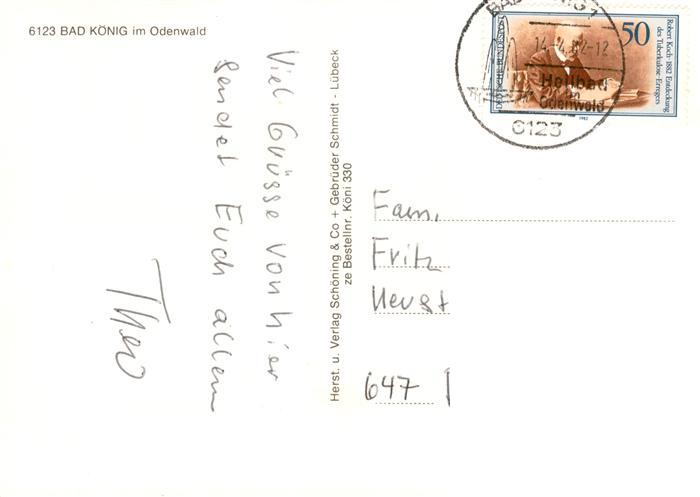 6123 BAD KÖNIG im Odenwald
Viel Grüsse von hier
sendet Euch allen
Theo
Herst. u. Verlag Schöning & Co + Gebrüder Schmidt - Lübeck
ze Bestellnr. Köni 330
BAD KÖNIG 1
14.4.82-12
Heilbad
im
Odenwald
6123
50
Robert Koch · 1882 Entdeckung
des Tuberkulose-Erregers
DEUTSCHE BUNDESPOST
1982
Fam.
Fritz
647